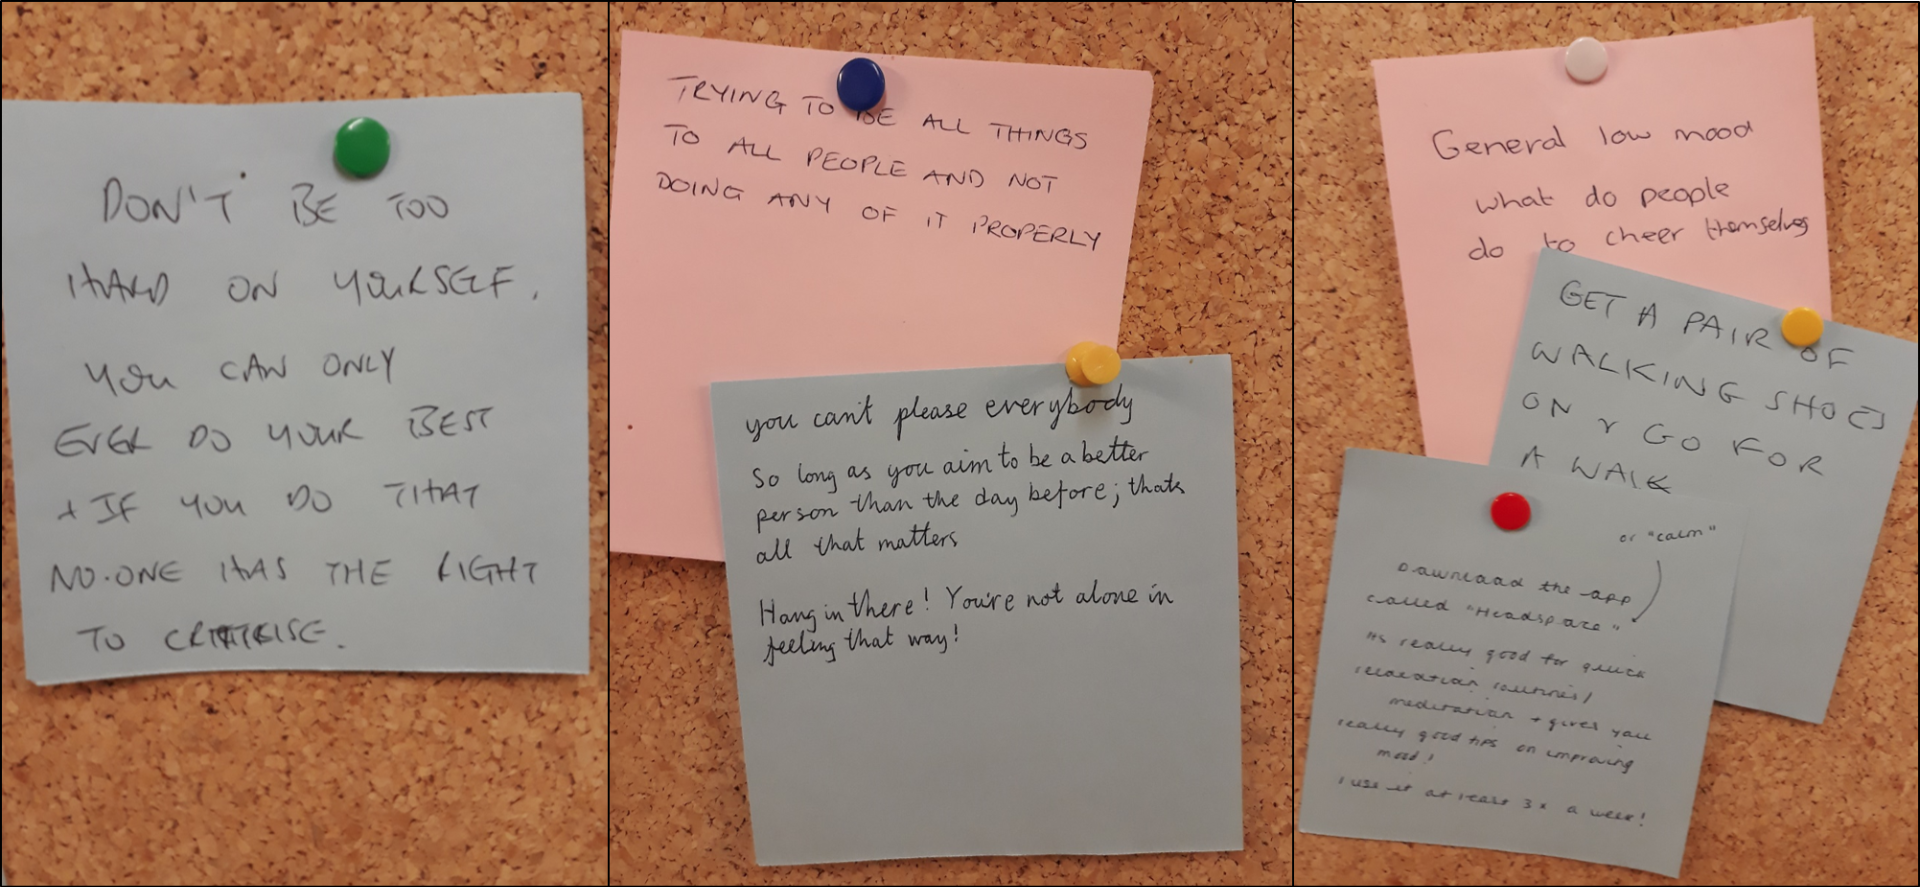 DON'T BE TOO
HARD ON YOURSELF.
YOU CAN ONLY
EVER DO YOUR BEST
+ IF YOU DO THAT
NO-ONE HAS THE RIGHT
TO CRITICISE.
TRYING TO BE ALL THINGS
TO ALL PEOPLE AND NOT
DOING ANY OF IT PROPERLY
you can't please everybody
So long as you aim to be a better
person than the day before; thats
all that matters
Hang in there! You're not alone in
feeling that way!
General low mood
what do people
do to cheer themselves
GET A PAIR OF
WALKING SHOES
ON & GO FOR
A WALK
or "calm"
Download the app
called "Headspace"
Its really good for quick
relaxation routines/
meditation + gives you
really good tips on improving
mood!
I use it at least 3x a week!